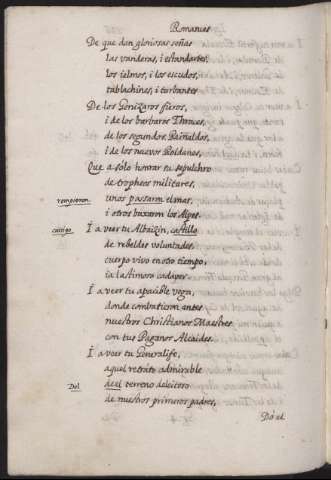 Romances
De que dan gloriosas señas
las vanderas, i estandartes,
los ielmos, i los escudos,
tablachines, i turbantes
De los Genizaros fieros,
i de los barbaros Thraces,
de los segundos Reinaldos,
i de los nuevos Roldanes,
Que a solo honrar tu sepulchro
de tropheos militares,
rompieron unos passarn el mar,
i otros baxaron los Alpes.
castigo I a veer tu Albaizin, castillo
de rebeldes voluntades,
cuerpo vivo en otro tiempo,
ia lastimoso cadaver.
I a veer tu apacible vega,
donde combatieron antes
nuestros Christianos Maestres
con tus Paganos Alcaides.
I a veer tu Generalife,
aquel retrato admirable
Del de el terreno deleitoso
de nuestros primeros padres,
Dó el